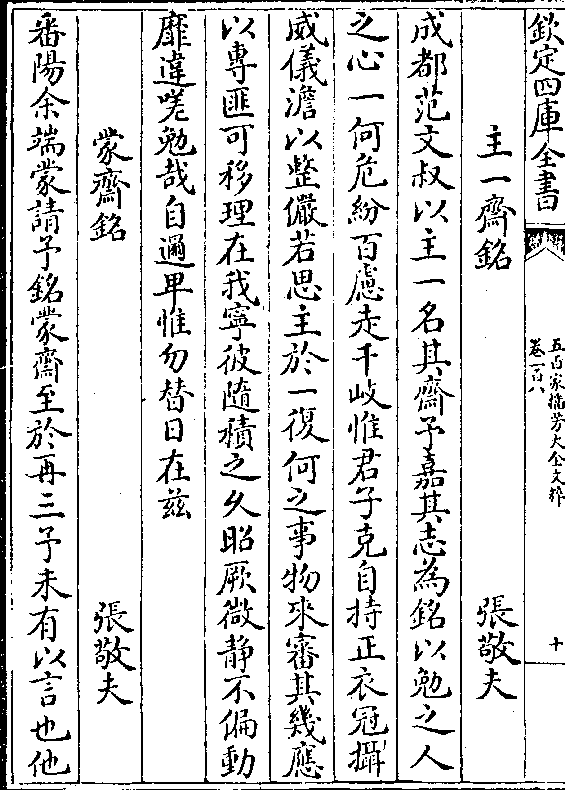 欽定四庫全書
五百家播芳大全文粹
卷一百八
十
主一齋銘
張敬夫
成都范文叔以主一名其齋予嘉其志為銘以勉之人
之心一何危紛百慮走千岐惟君子克自持正衣冠攝
威儀澹以整儼若思主於一復何之事物來審其幾應
以專匪可移理在我寧彼隨積之久昭厥微靜不偏動
靡違嗟勉哉自邇卑惟勿替日在兹
蒙齋銘
張敬夫
番陽余端蒙請予銘蒙齋至於再三予未有以言也他